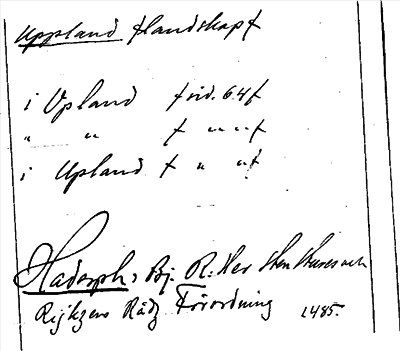 Uppland flandskapf
i Upland förd. 64f
" " f " " f
i Upland f " " f
Hadorph, Bj. R: Her Sten Sturess och
Rijkzens Rådz Förordning 1485.